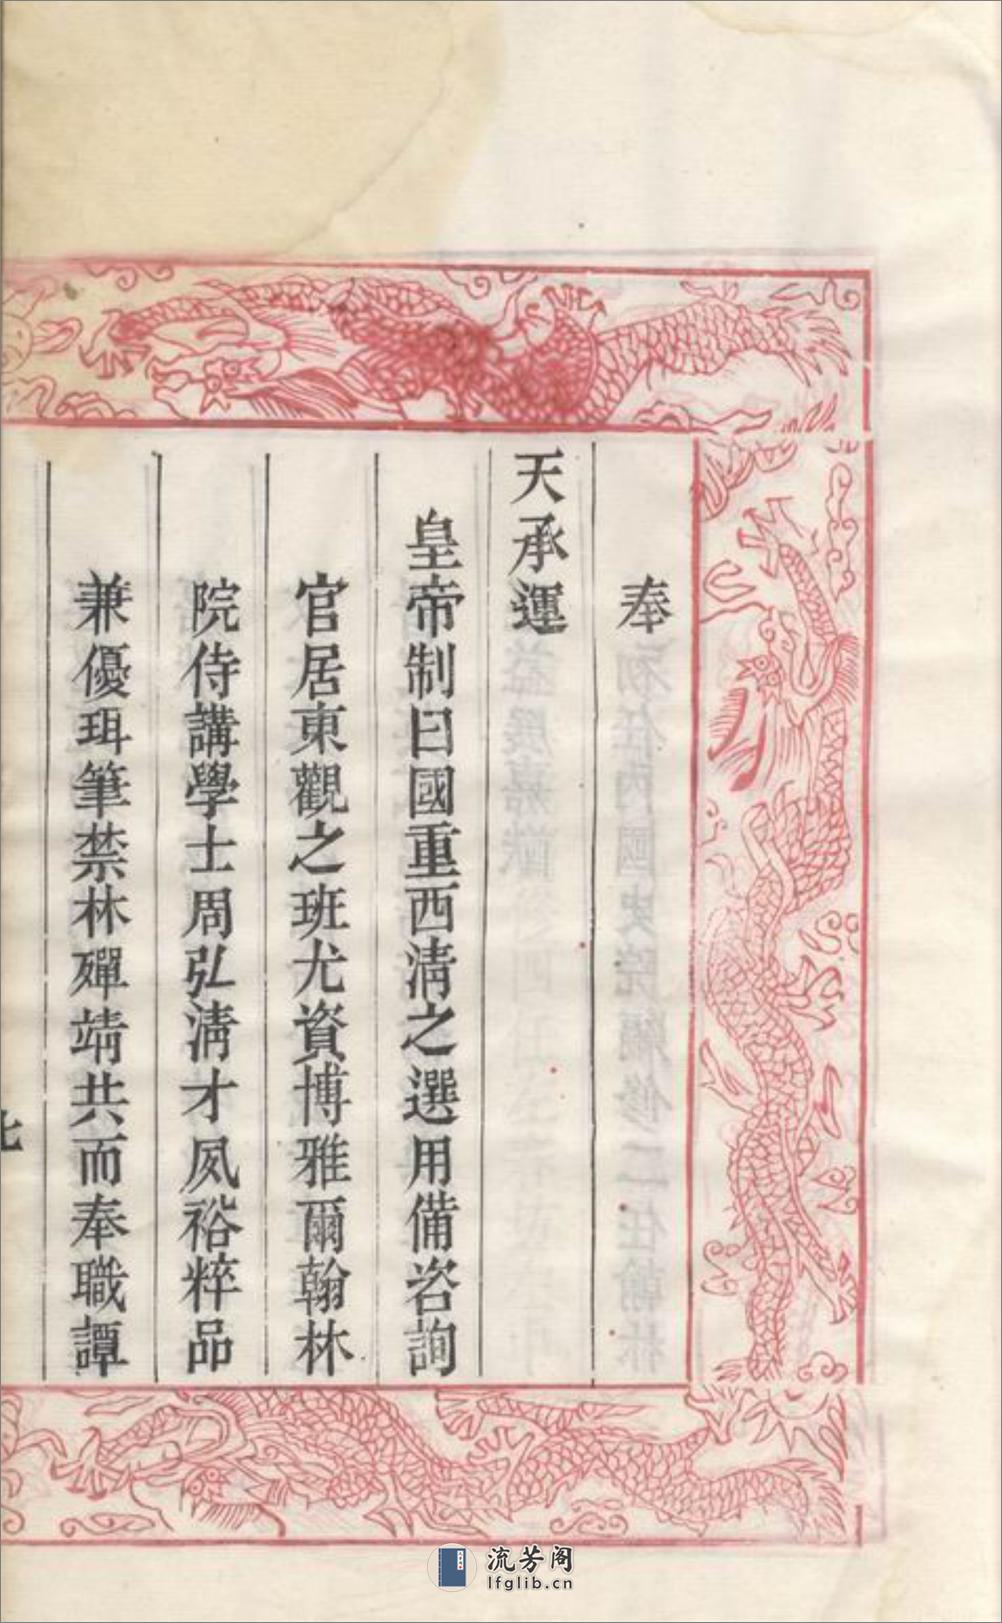 奉
天承運
皇帝制曰國重西清之選用備咨詢
官居東觀之班尤資博雅爾翰林
院侍講學士周弘清才夙裕粹品
兼優珥筆禁林殫靖共而奉職譚
流芳阁
lfglib.cn